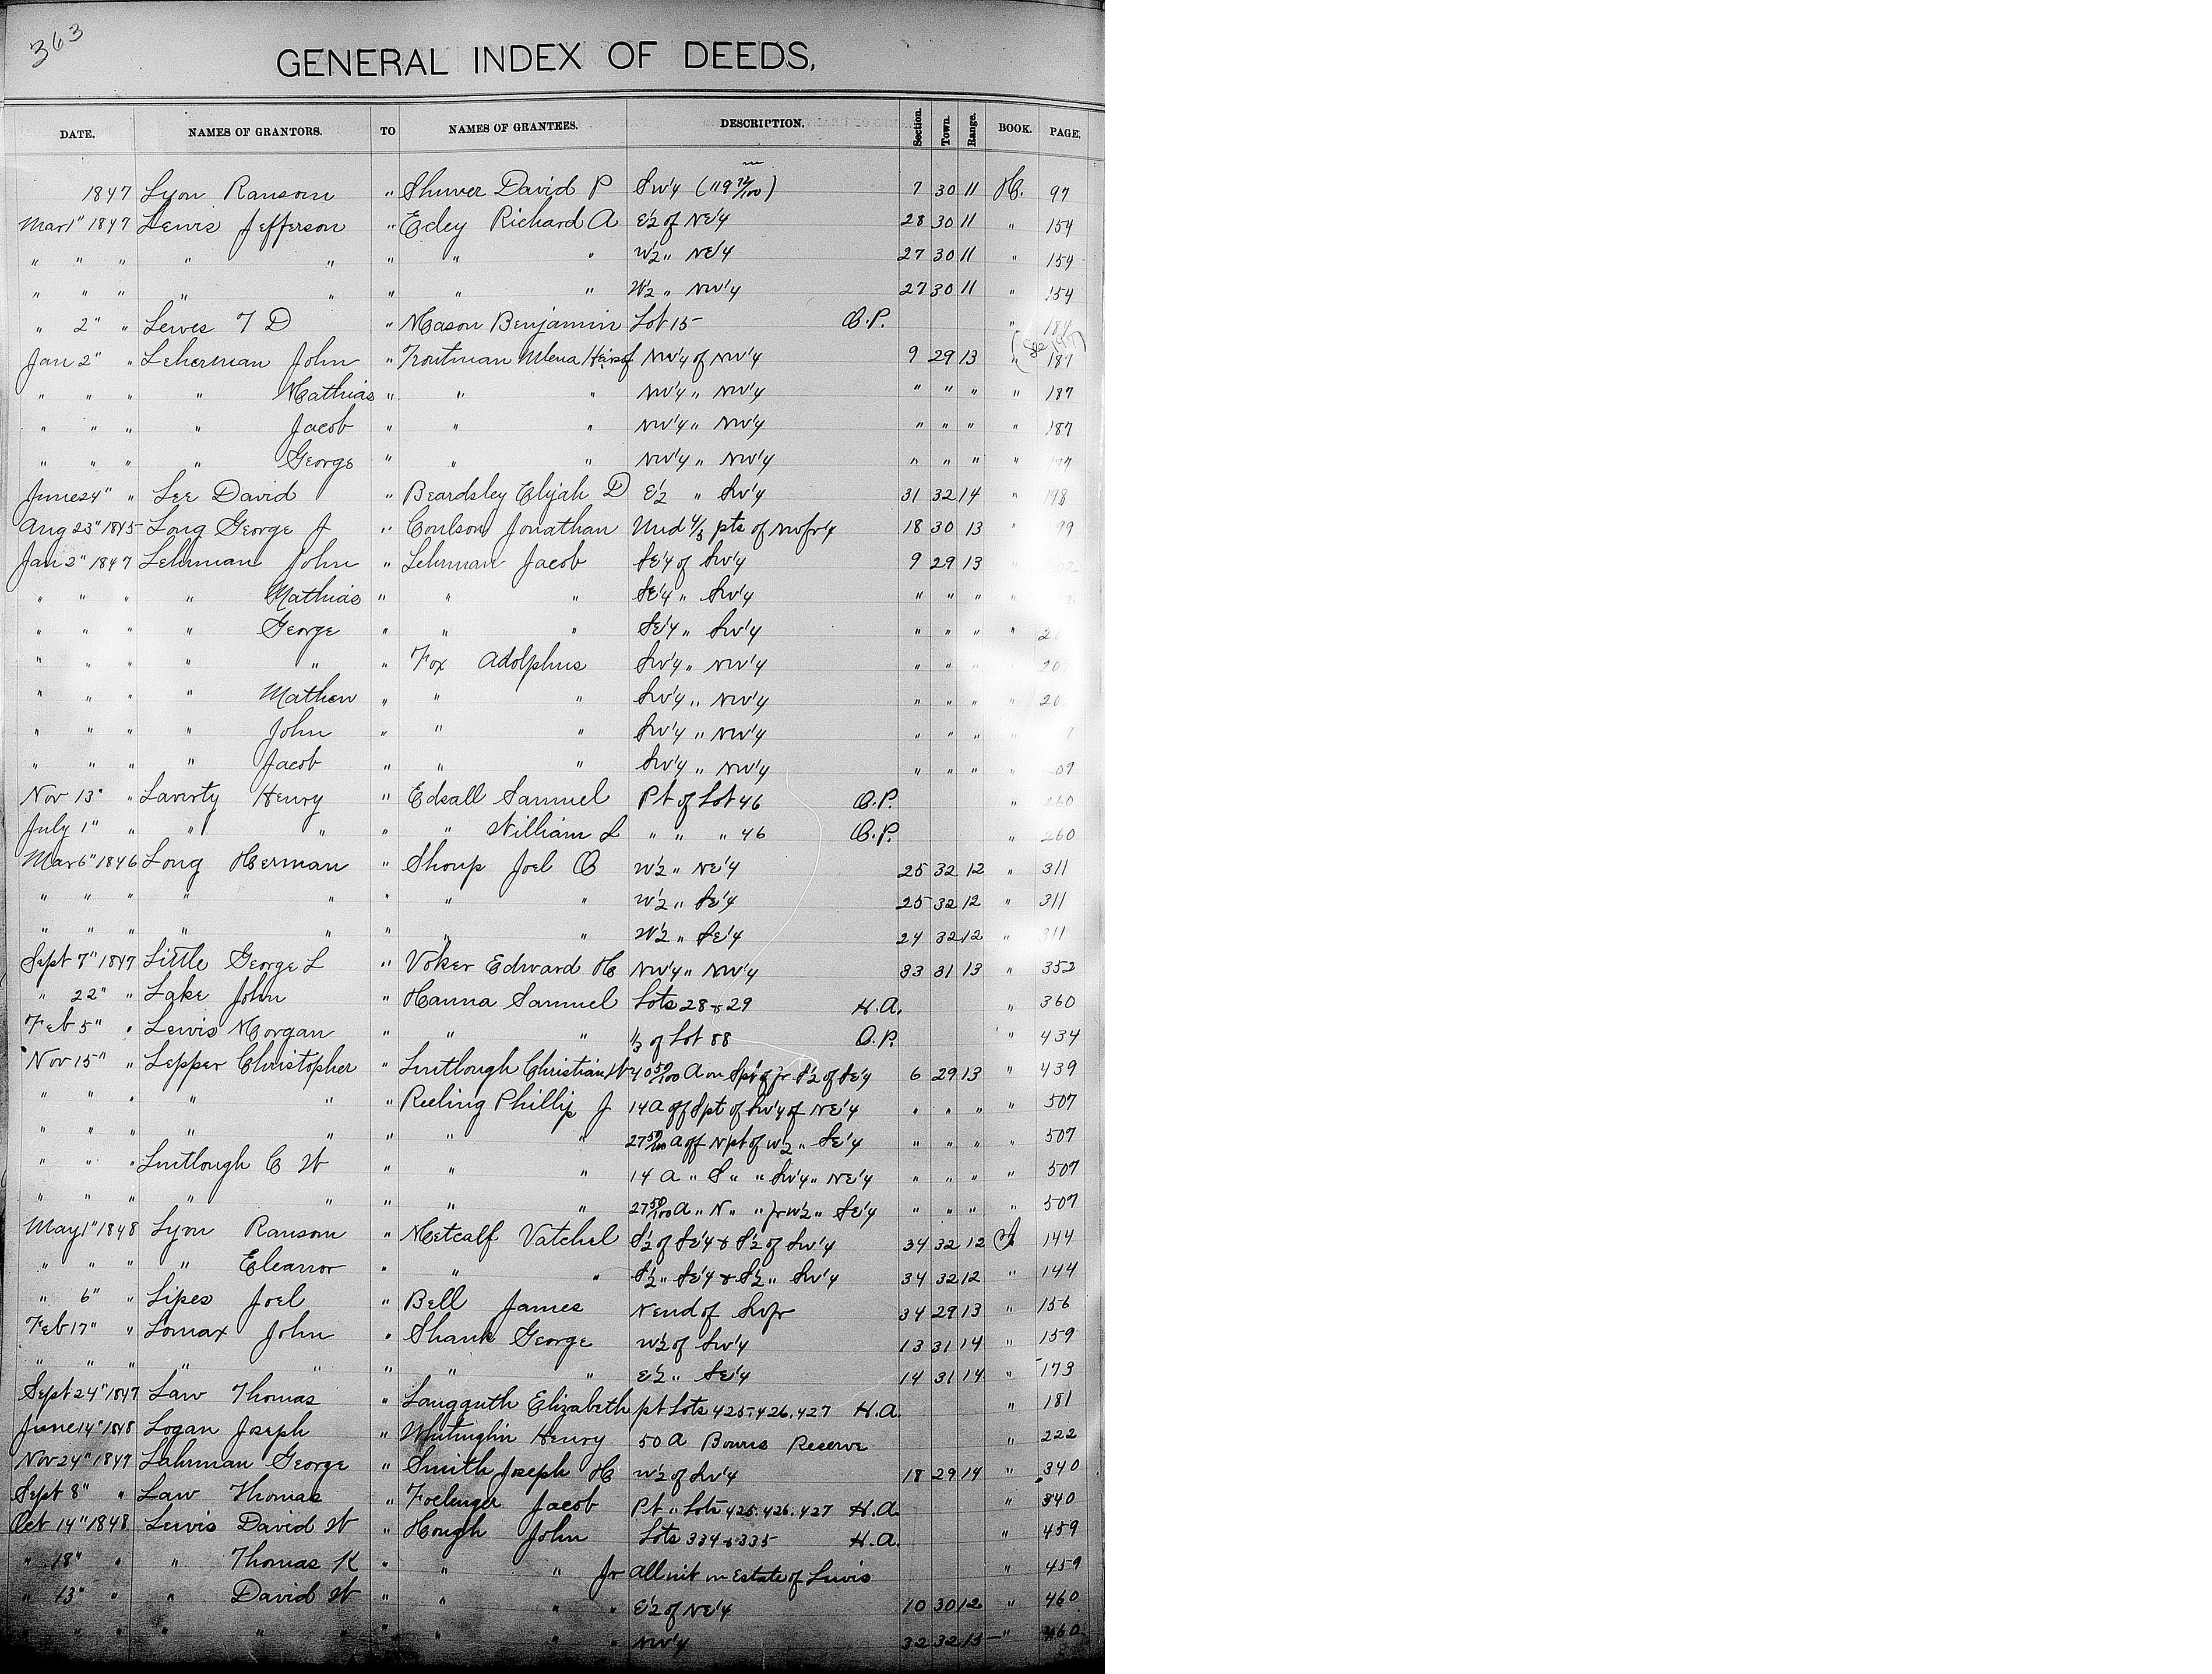 363
GENERAL INDEX OF DEEDS.
DATE. NAMES OF GRANTORS. TO NAMES OF GRANTEES. DESCRIPTION. Section. Town. Range. BOOK. PAGE.
1847 Lyon Ransom " David P Sw¼ (119 72/100) 7 30 11 H. 97
Mar 1" 1847 Lewis Jefferson " Edey Richard A E½ of NE¼ 28 30 11 " 154
" " " " " " " " W½ " NE¼ 27 30 11 " 154
" " " " " " " " W½ " NW¼ 27 30 11 " 154
" 2" " Lewes T D " Mason Benjamin Lot 15 O.P. "
Jan 2" " Leherman John " Troutman Heirs of NW¼ of NW¼ 9 29 13 " 187
" " " " Mathias " " " NW¼ " NW¼ " " " " 187
" " " " Jacob " " " NW¼ " NW¼ " " " " 187
" " " " George " " " NW¼ " NW¼ " " " "
June 24" " Lee David " Beardsley Elijah D E½ " Sw¼ 31 32 14 " 198
Aug 23" 1845 Long George J " Coulson Jonathan Und 4/5 pts of NW fr ¼ 18 30 13 " 99
Jan 2" 1847 Lehrman John " Lehrman Jacob SE¼ of Sw¼ 9 29 13
" " " " Mathias " " " SE¼ " Sw¼ " " " "
" " " " George " " " SE¼ " Sw¼ " " " "
" " " " " " Fox Adolphus Sw¼ " NW¼ " " "
" " " " Mathew " " " Sw¼ " NW¼ " " " "
" " " " John " " " Sw¼ " NW¼ " " " "
" " " " Jacob " " " Sw¼ " NW¼ " " " " 09
Nov 13" " Laverty Henry " Edsall Samuel Pt of Lot 46 O.P. " 260
July 1" " " " " " William S " " " 46 O.P. " 260
Mar 6" 1846 Long Herman " Shoup Joel B W½ " NE¼ 25 32 12 " 311
" " " " " " " " W½ " SE¼ 25 32 12 " 311
" " " " " " " " W½ " SE¼ 24 32 12 " 311
Sept 7" 1847 Little George L " Voker Edward H NW¼ " NW¼ 33 31 13 " 352
" 22" " Lake John " Hanna Samuel Lots 28 & 29 H.A. " 360
Feb 5" " Lewis Morgan " " " ⅓ of Lot 88 O.P. " 434
Nov 15" " Lepper Christopher " Christian W 40 50/100 A on S pt of fr S½ of SE¼ 6 29 13 " 439
" " " " " " Reeling Phillip J 14 A off S pt of Sw¼ of NE¼ " " " " 507
" " " " " " " " 27 50/100 A off N pt of W½ " SE¼ " " " " 507
" " " C W " " " 14 A " S " " Sw¼ " NE¼ " " " " 507
" " " " " " " " 27 50/100 A " N " " fr W½ " SE¼ " " " " 507
May 1" 1848 Lyon Ransom " Metcalf Vatchel S½ of SE¼ & S½ of Sw¼ 34 32 12 I 144
" " " " Eleanor " " " S½ " SE¼ & S½ " Sw¼ 34 32 12 " 144
" 6" " Lipes Joel " Bell James N end of Sw fr 34 29 13 " 156
Feb 17" " Lomax John " Shank George W½ of Sw¼ 13 31 14 " 159
" " " " " " " " E½ " SE¼ 14 31 14 " 173
Sept 24" 1847 Law Thomas " Langguth Elizabeth pt Lots 425. 426. 427 H.A. " 181
June 14" 1848 Logan Joseph " Henry 50 A Reserve " 222
Nov 24" 1847 Lahrman George " Smith Joseph H W½ of Sw¼ 18 29 14 " 340
Sept 8" " Law Thomas " Foelinger Jacob Pt " Lots 425. 426. 427 H.A. " 340
Oct 14" 1848 Lewis David W " Hough John Lots 334 & 335 H.A. " 459
" 18" " " Thomas K " " " Jr All int in Estate of Lewis " 459
" 13" " " David W " " " " E½ of NE¼ 10 30 12 " 460
" " " " " " " " " " NW¼ 32 32 13 " 460